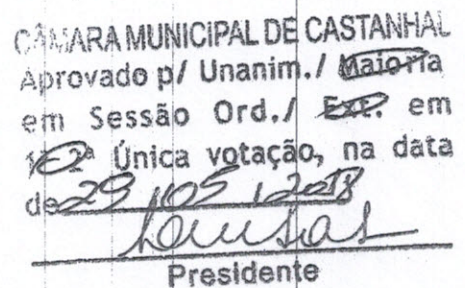 CÂMARA MUNICIPAL DE CASTANHAL
Aprovado p/ Unanim./ Maioria
em Sessão Ord./ Ext. em
1ª 2ª Única votação, na data
de 29 / 05 / 2018
Presidente